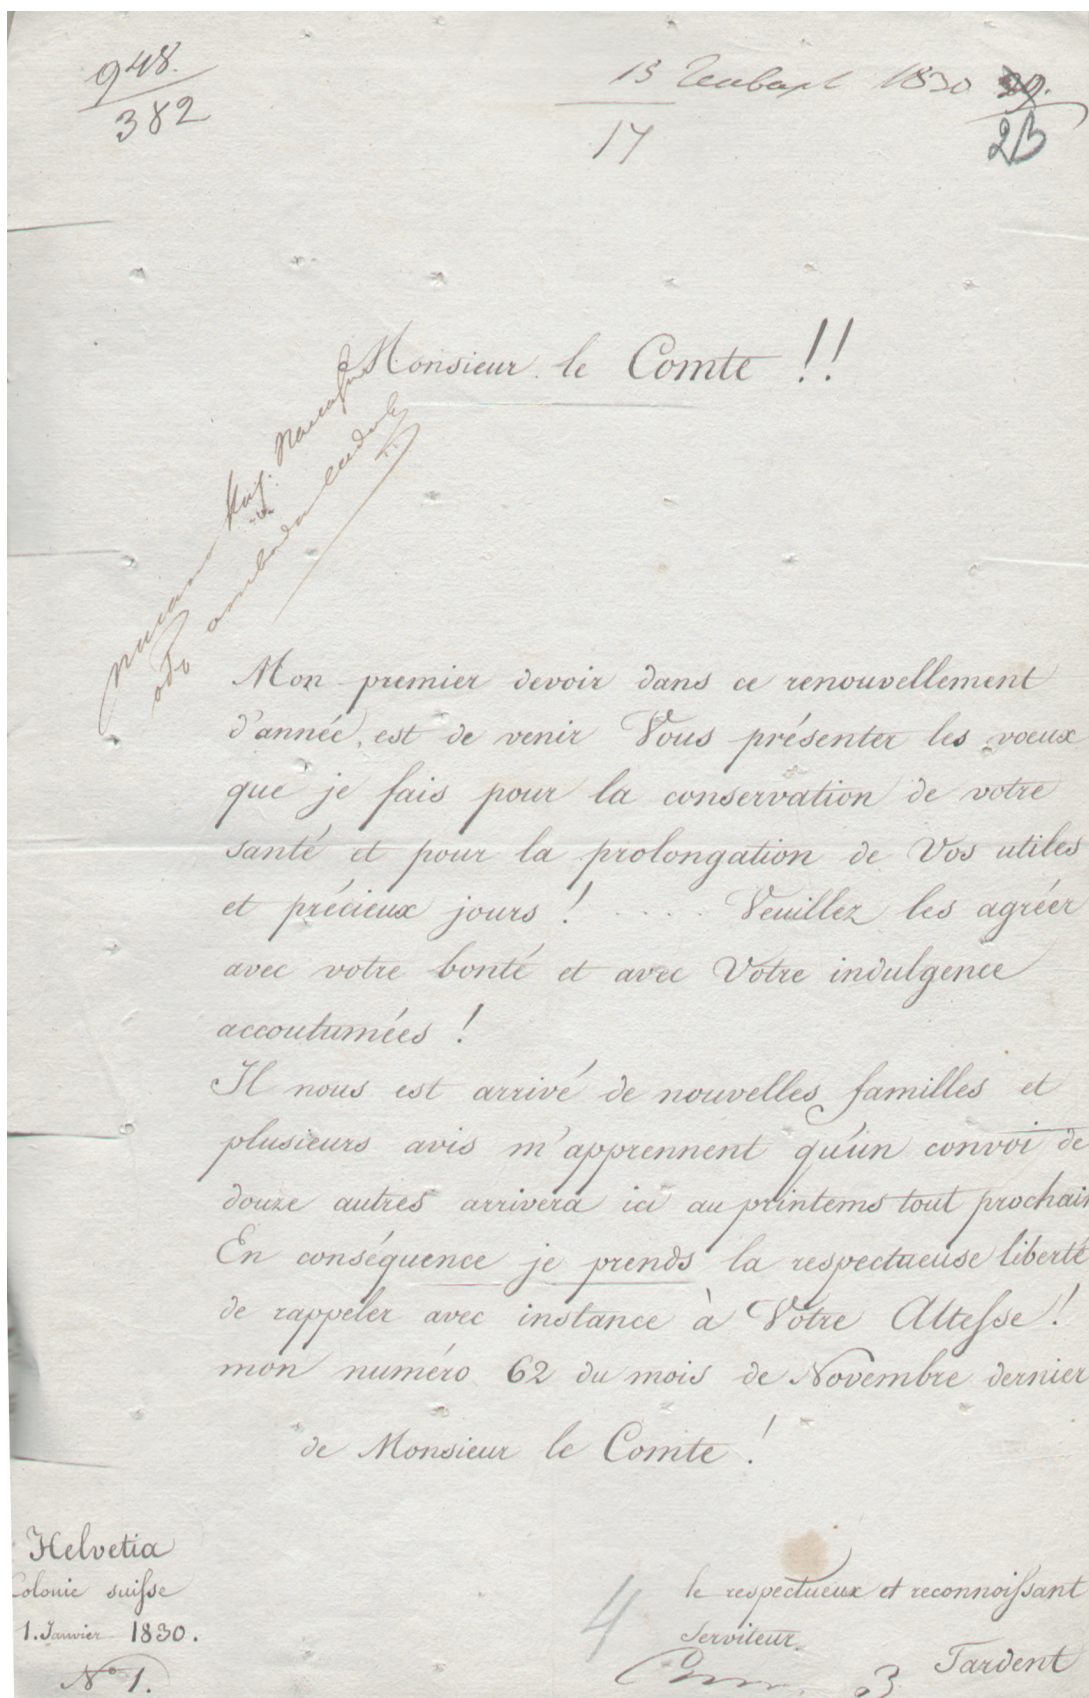 948.
382
13 Генваря 1830
17
23
Monsieur le Comte !!
Mon premier devoir dans ce renouvellement
d'année, est de venir Vous présenter les voeux
que je fais pour la conservation de votre
santé et pour la prolongation de Vos utiles
et précieux jours ! ..... Veuillez les agréer
avec votre bonté et avec Votre indulgence
accoutumées !
Il nous est arrivé de nouvelles familles et
plusieurs avis m'apprennent qu'un convoi de
douze autres arrivera ici au printems tout prochain
En conséquence je prends la respectueuse liberté
de rappeler avec instance à Votre Altesse !
mon numéro 62 du mois de Novembre dernier
de Monsieur le Comte !
Helvetia
Colonie suisse
1. Janvier 1830.
N° 1.
le respectueux et reconnoissant
Serviteur
Tardent
4
3